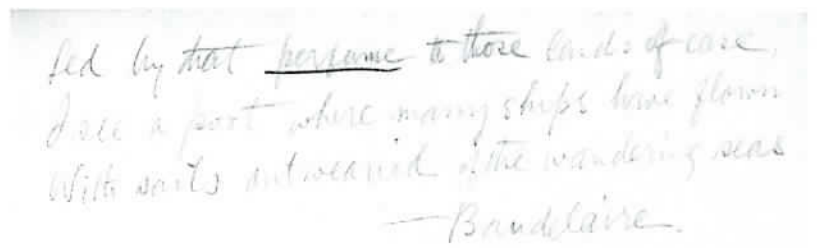 Led by that perfume to those lands of ease,
I see a port where many ships have flown
With sails outwearied of the wandering seas
—Baudelaire.